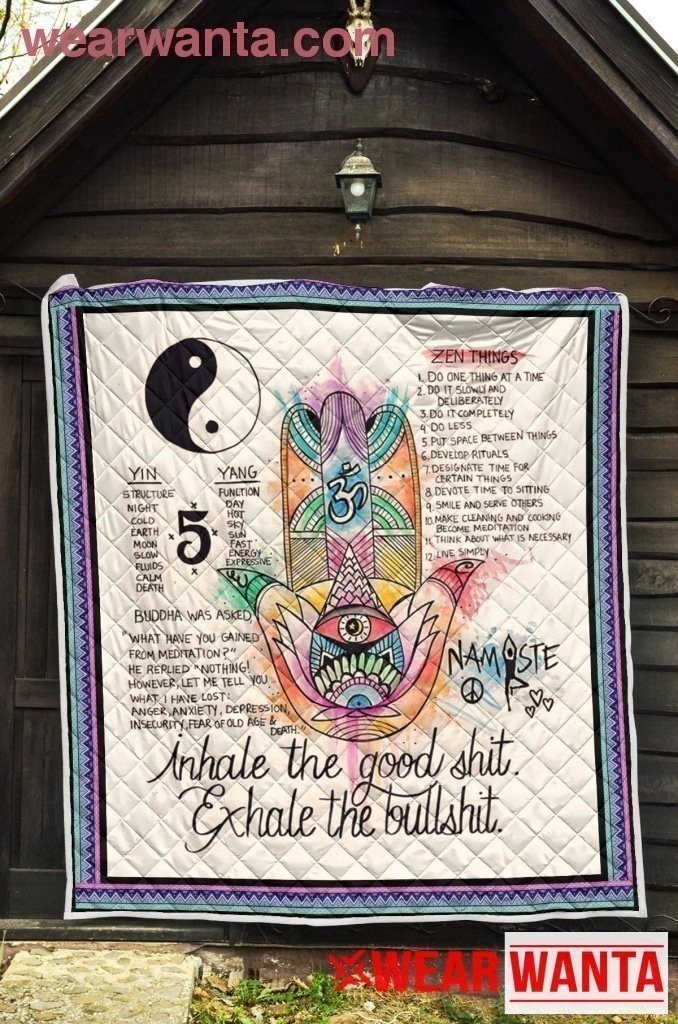 wearwanta.com
ZEN THINGS
1. DO ONE THING AT A TIME
2. DO IT SLOWLY AND
DELIBERATELY
3. DO IT COMPLETELY
4. DO LESS
5. PUT SPACE BETWEEN THINGS
6. DEVELOP RITUALS
7. DESIGNATE TIME FOR
CERTAIN THINGS
8. DEVOTE TIME TO SITTING
9. SMILE AND SERVE OTHERS
10. MAKE CLEANING AND COOKING
BECOME MEDITATION
11. THINK ABOUT WHAT IS NECESSARY
12. LIVE SIMPLY
YIN
STRUCTURE
NIGHT
COLD
EARTH
MOON
SLOW
FLUIDS
CALM
DEATH
5
YANG
FUNCTION
DAY
HOT
SKY
SUN
FAST
ENERGY
EXPRESSIVE
ॐ
BUDDHA WAS ASKED,
"WHAT HAVE YOU GAINED
FROM MEDITATION?"
HE REPLIED "NOTHING!
HOWEVER, LET ME TELL YOU
WHAT I HAVE LOST:
ANGER, ANXIETY, DEPRESSION,
INSECURITY, FEAR OF OLD AGE &
DEATH."
NAMASTE
inhale the good shit.
Exhale the bullshit.
WEAR WANTA